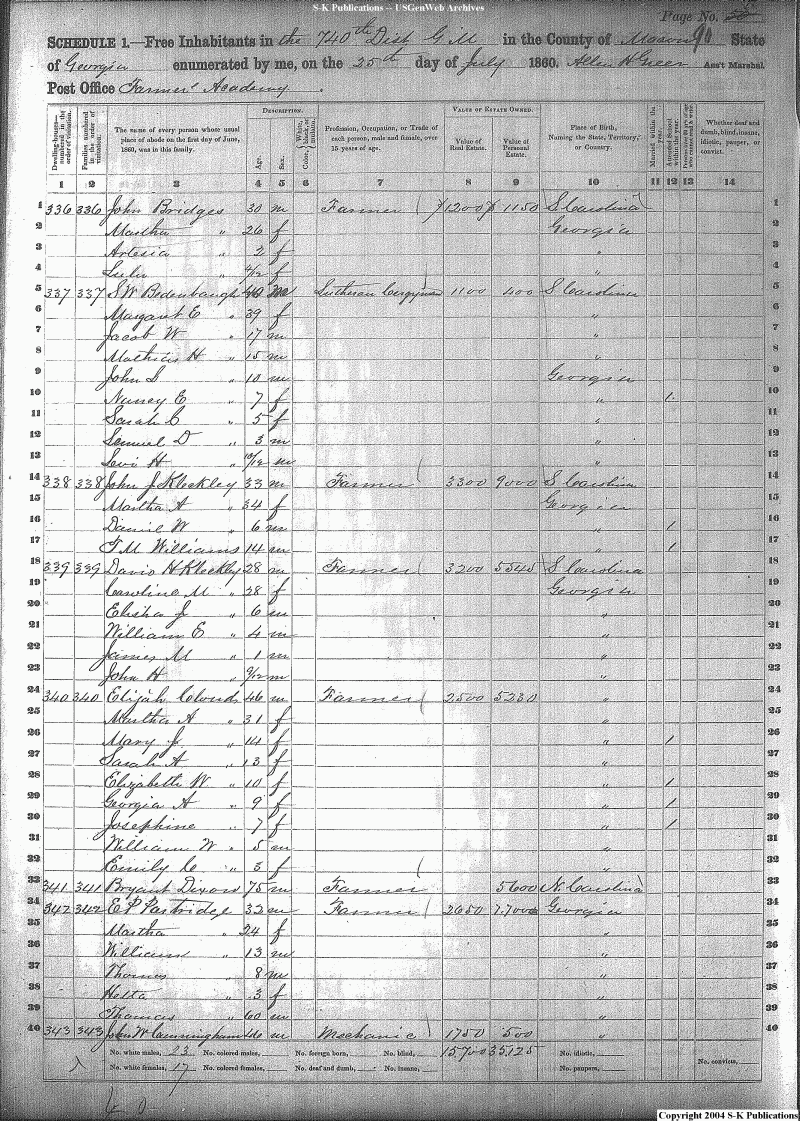 S-K Publications -- USGenWeb Archives
Page No. 58
90
SCHEDULE 1.—Free Inhabitants in the 740th Dist G M in the County of Macon State
of Georgia enumerated by me, on the 25th day of July 1860. Allen H Greer Ass't Marshal.
Post Office Farmers' Academy.
Dwelling-houses—numbered in the order of visitation. Families numbered in the order of visitation. The name of every person whose usual place of abode on the first day of June, 1860, was in this family. DESCRIPTION. Age. Sex. Color, White, black, or mulatto. Profession, Occupation, or Trade of each person, male and female, over 15 years of age. VALUE OF ESTATE OWNED. Value of Real Estate. Value of Personal Estate. Place of Birth, Naming the State, Territory, or Country. Married within the year. Attended School within the year. Whether deaf and dumb, blind, insane, idiotic, pauper, or convict.
1 2 3 4 5 6 7 8 9 10 11 12 13 14
1 336 336 John Bridges 30 m Farmer 1200 1150 S. Carolina 1
2 Martha " 26 f Georgia 2
3 Artesia " 2 f " 3
4 Lulu " 4/12 f " 4
5 337 337 S W Bedenbaugh 40 m Lutheran Clergyman 1100 400 S Carolina 5
6 Margaret E " 39 f " 6
7 Jacob W " 17 m " 7
8 Mathias H " 15 m " 8
9 John S " 10 m Georgia 9
10 Nancy E " 7 f " 1 10
11 Sarah C " 5 f " 11
12 Samuel D " 3 m " 12
13 Levi H " 10/12 m " 13
14 338 338 John J Kleckley 33 m Farmer 3300 9000 S Carolina 14
15 Martha A " 34 f Georgia 15
16 Daniel W " 6 m " 1 16
17 T. M Williams 14 m " 1 17
18 339 339 David H Kleckley 28 m Farmer 3200 5545 S Carolina 18
19 Caroline M " 28 f Georgia 19
20 Elisha J " 6 m " 20
21 William E " 4 m " 21
22 James M " 1 m " 22
23 John H " 9/12 m " 23
24 340 340 Elijah Clouds 46 m Farmer 2500 5230 " 24
25 Martha A " 31 f " 25
26 Mary J " 14 f " 1 26
27 Sarah A " 13 f " 27
28 Elizabeth W " 10 f " 1 28
29 Georgia A " 9 f " 1 29
30 Josephine " 7 f " 1 30
31 William W " 5 m " 31
32 Emily C " 3 f " 32
33 341 341 Bryant Dixon 75 m Farmer 5600 N. Carolina 33
34 342 342 E P Partridge 32 m Farmer 2650 7.700 Georgia 34
35 Martha " 24 f " 35
36 William " 13 m " 36
37 Thomas " 8 m " 37
38 " 3 f " 38
39 Thomas " 60 m " 39
40 343 343 John W Cunningham 46 m Mechanic 1750 500 " 40
No. white males, 23 No. colored males, No. foreign born, No. blind, 15.700 35.125 No. idiotic,
No. white females, 17 No. colored females, No. deaf and dumb, No. insane, No. paupers, No. convicts,
Copyright 2004 S-K Publications